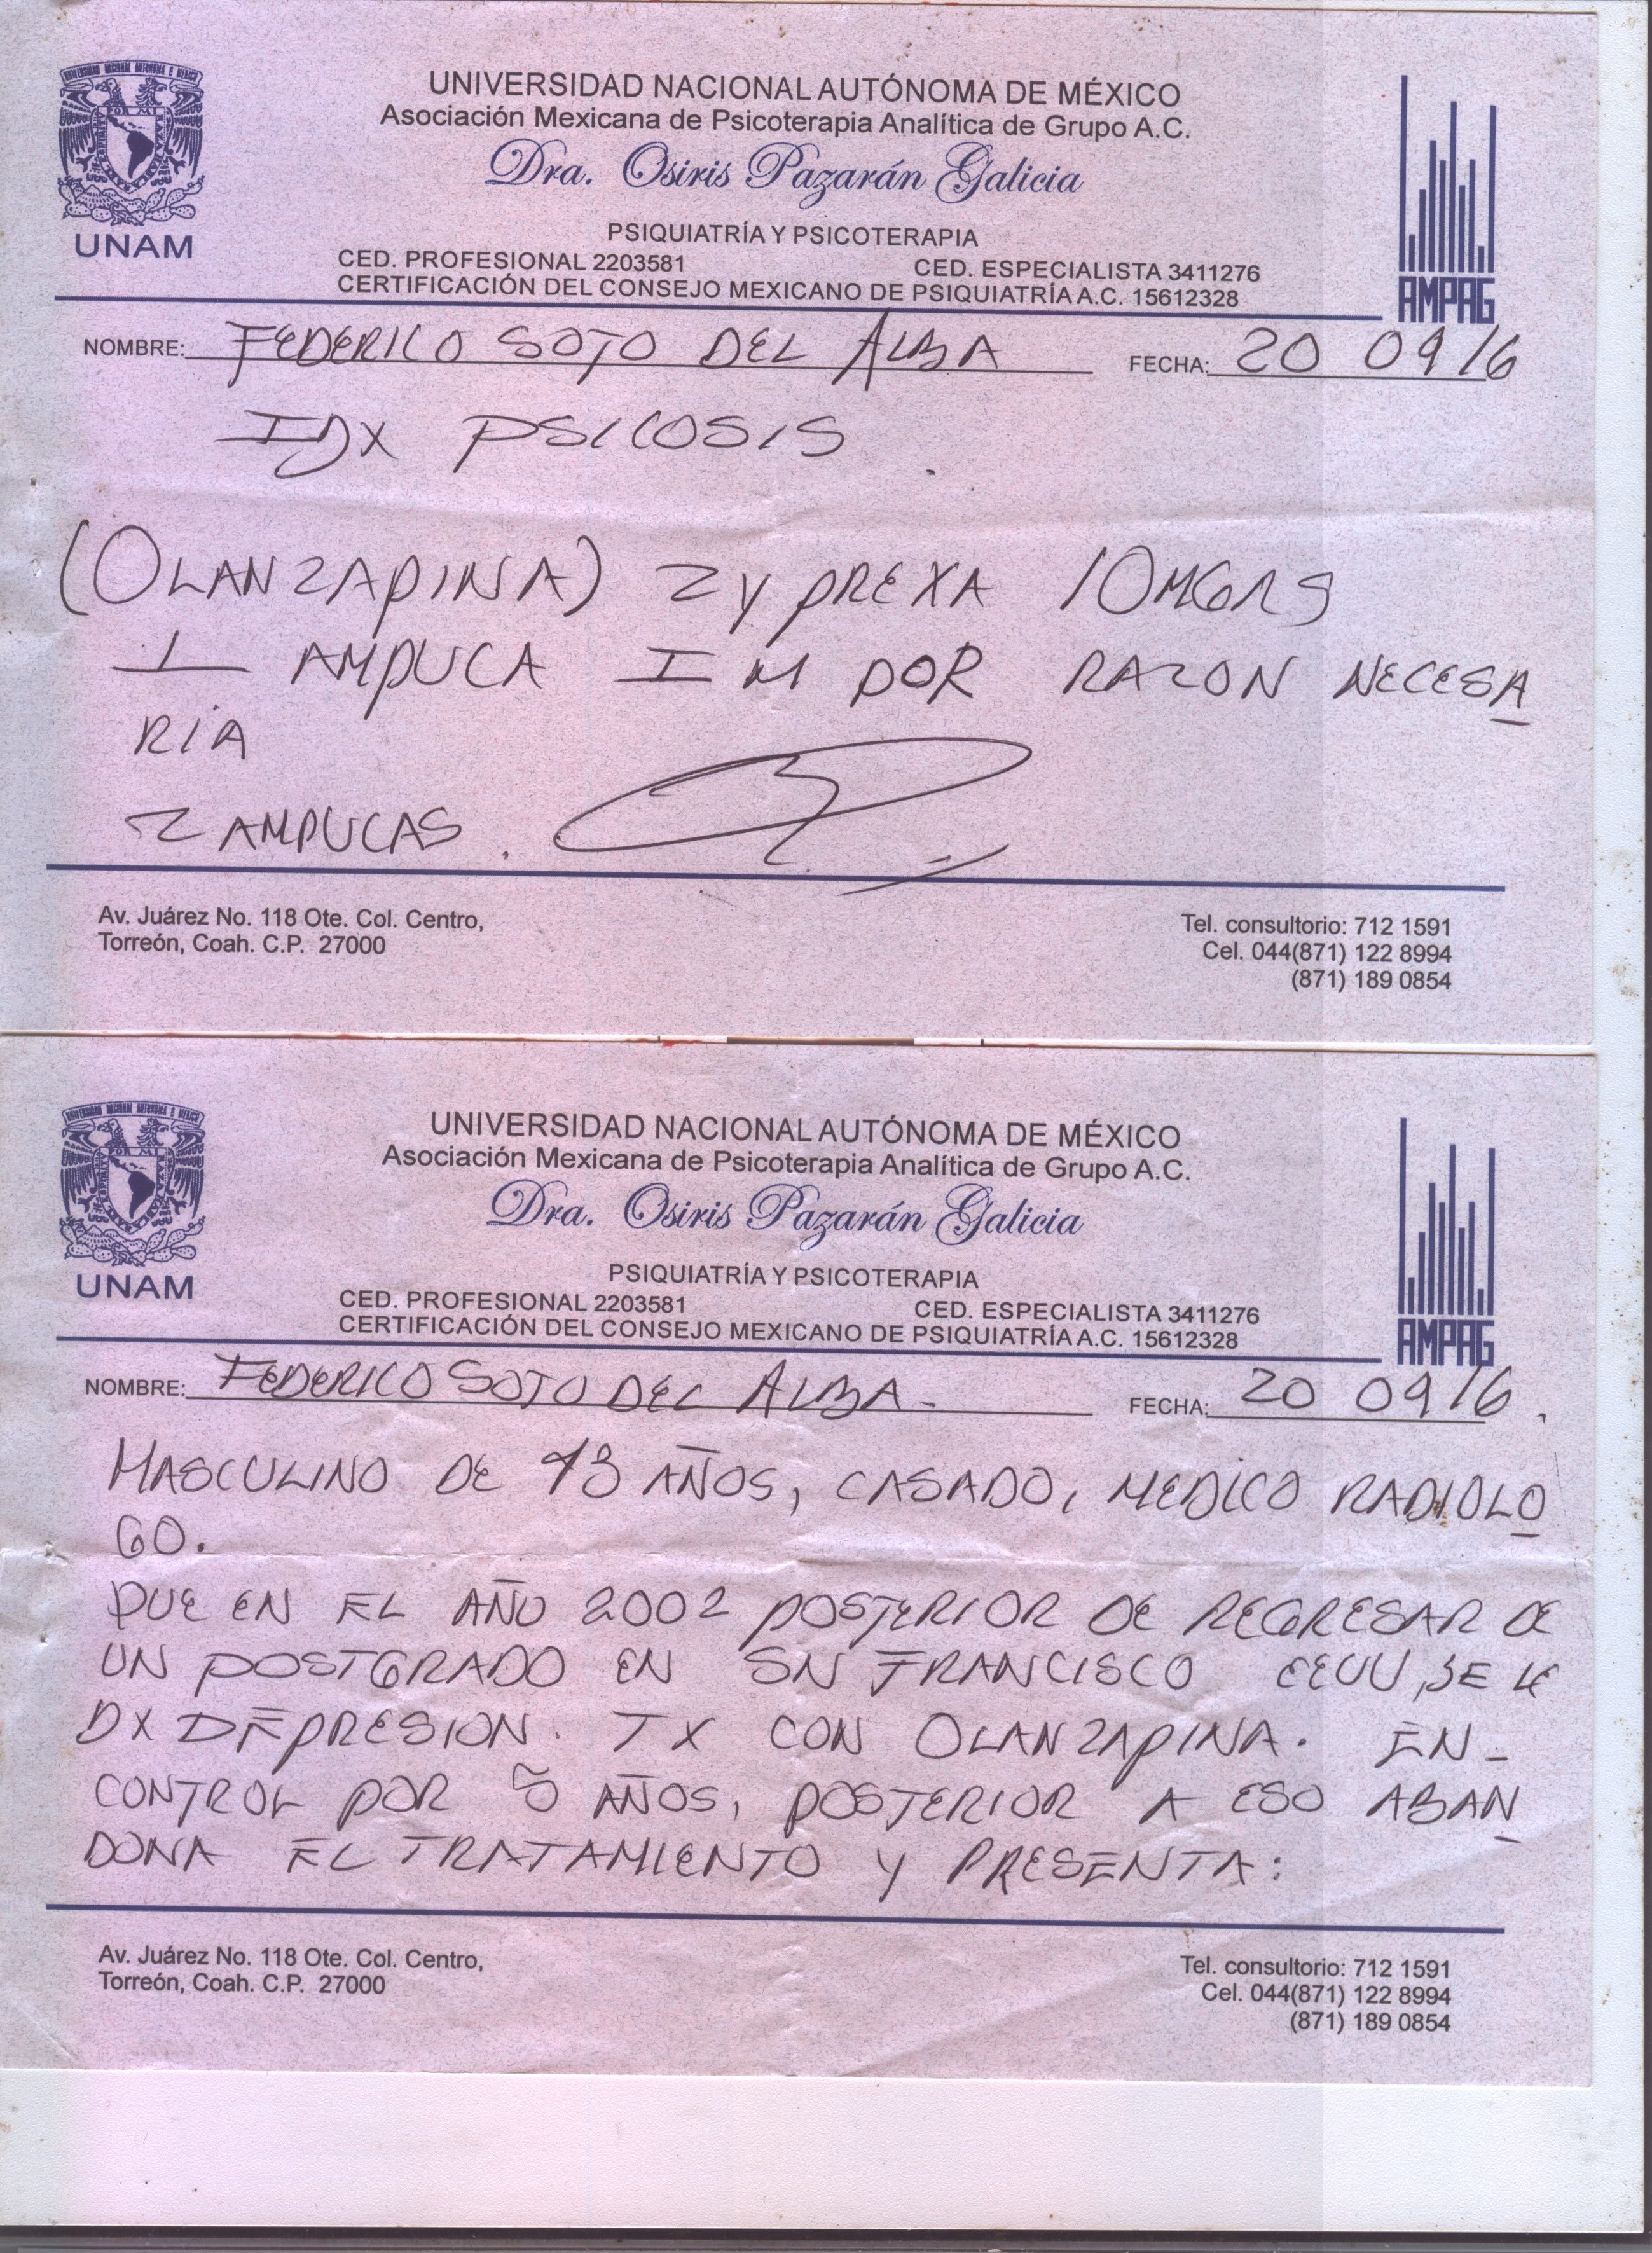 UNIVERSIDAD NACIONAL AUTÓNOMA DE MÉXICO
Asociación Mexicana de Psicoterapia Analítica de Grupo A.C.
Dra. Osiris Pazarán Galicia
UNAM
PSIQUIATRÍA Y PSICOTERAPIA
CED. PROFESIONAL 2203581 CED. ESPECIALISTA 3411276
CERTIFICACIÓN DEL CONSEJO MEXICANO DE PSIQUIATRÍA A.C. 15612328
AMPAG
NOMBRE: FEDERICO SOTO DEL ALBA FECHA: 20 09 16
IDX PSICOSIS.
(OLANZAPINA) ZYPREXA 10MGRS
1 AMPULA IM POR RAZON NECESA
RIA
2 AMPULAS.
Av. Juárez No. 118 Ote. Col. Centro,
Torreón, Coah. C.P. 27000
Tel. consultorio: 712 1591
Cel. 044(871) 122 8994
(871) 189 0854
UNIVERSIDAD NACIONAL AUTÓNOMA DE MÉXICO
Asociación Mexicana de Psicoterapia Analítica de Grupo A.C.
Dra. Osiris Pazarán Galicia
UNAM
PSIQUIATRÍA Y PSICOTERAPIA
CED. PROFESIONAL 2203581 CED. ESPECIALISTA 3411276
CERTIFICACIÓN DEL CONSEJO MEXICANO DE PSIQUIATRÍA A.C. 15612328
AMPAG
NOMBRE: FEDERICO SOTO DEL ALBA. FECHA: 20 09 16.
MASCULINO DE 43 AÑOS, CASADO, MEDICO RADIOLO
GO.
QUE EN EL AÑO 2002 POSTERIOR DE REGRESAR DE
UN POSTGRADO EN SN FRANCISCO EEUU, SE LE
DX DEPRESION. TX CON OLANZAPINA. EN-
CONTROL POR 5 AÑOS, POSTERIOR A ESO ABAN
DONA EL TRATAMIENTO Y PRESENTA:
Av. Juárez No. 118 Ote. Col. Centro,
Torreón, Coah. C.P. 27000
Tel. consultorio: 712 1591
Cel. 044(871) 122 8994
(871) 189 0854